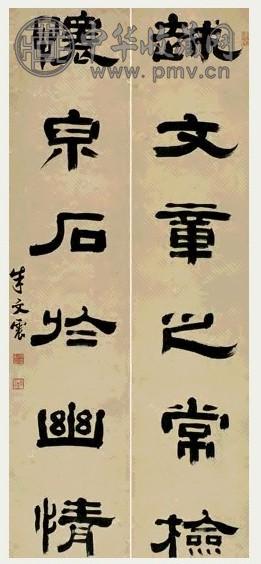 中华收藏网
www.pmv.cn
文章之常檢
泉石於幽情
朱文震